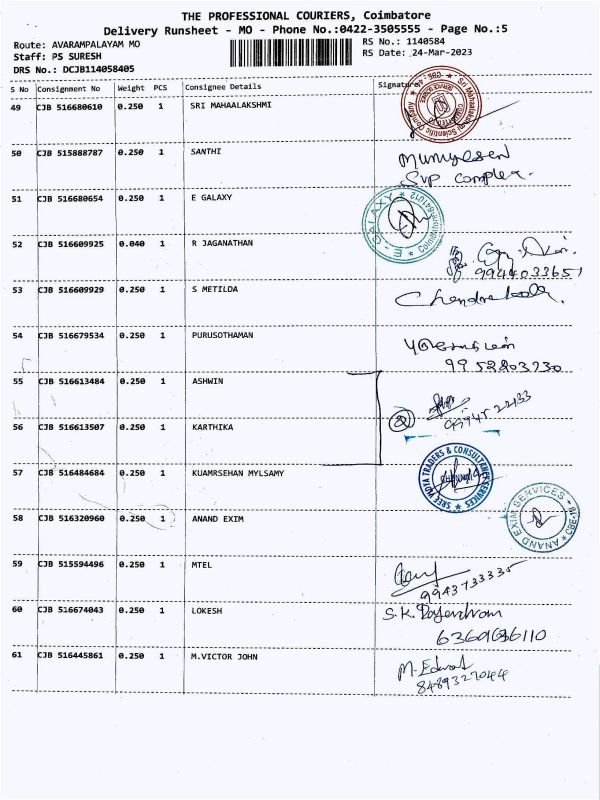 THE PROFESSIONAL COURIERS, Coimbatore
Delivery Runsheet - MO - Phone No.:0422-3505555 - Page No.:5
Route: AVARAMPALAYAM MO RS No.: 1140584
Staff: PS SURESH RS Date: 24-Mar-2023
DRS No.: DCJB114058405
S No Consignment No Weight PCS Consignee Details Signature
49 CJB 516680610 0.250 1 SRI MAHAALAKSHMI
50 CJB 515888787 0.250 1 SANTHI
SVP Complex.
51 CJB 516680654 0.250 1 E GALAXY
E - GALAXY * Coimbatore-641012 *
52 CJB 516609925 0.040 1 R JAGANATHAN
9944033651
53 CJB 516609929 0.250 1 S METILDA
54 CJB 516679534 0.250 1 PURUSOTHAMAN
9952803730
55 CJB 516613484 0.250 1 ASHWIN
56 CJB 516613507 0.250 1 KARTHIKA
2
57 CJB 516484684 0.250 1 KUAMRSEHAN MYLSAMY
SREE VIDYA TRADERS & CONSULTANCY SERVICES
58 CJB 516320960 0.250 1 ANAND EXIM
ANAND EXIM SERVICES
59 CJB 515594496 0.250 1 MTEL
9943733335
60 CJB 516674043 0.250 1 LOKESH
61 CJB 516445861 0.250 1 M.VICTOR JOHN
8489327044